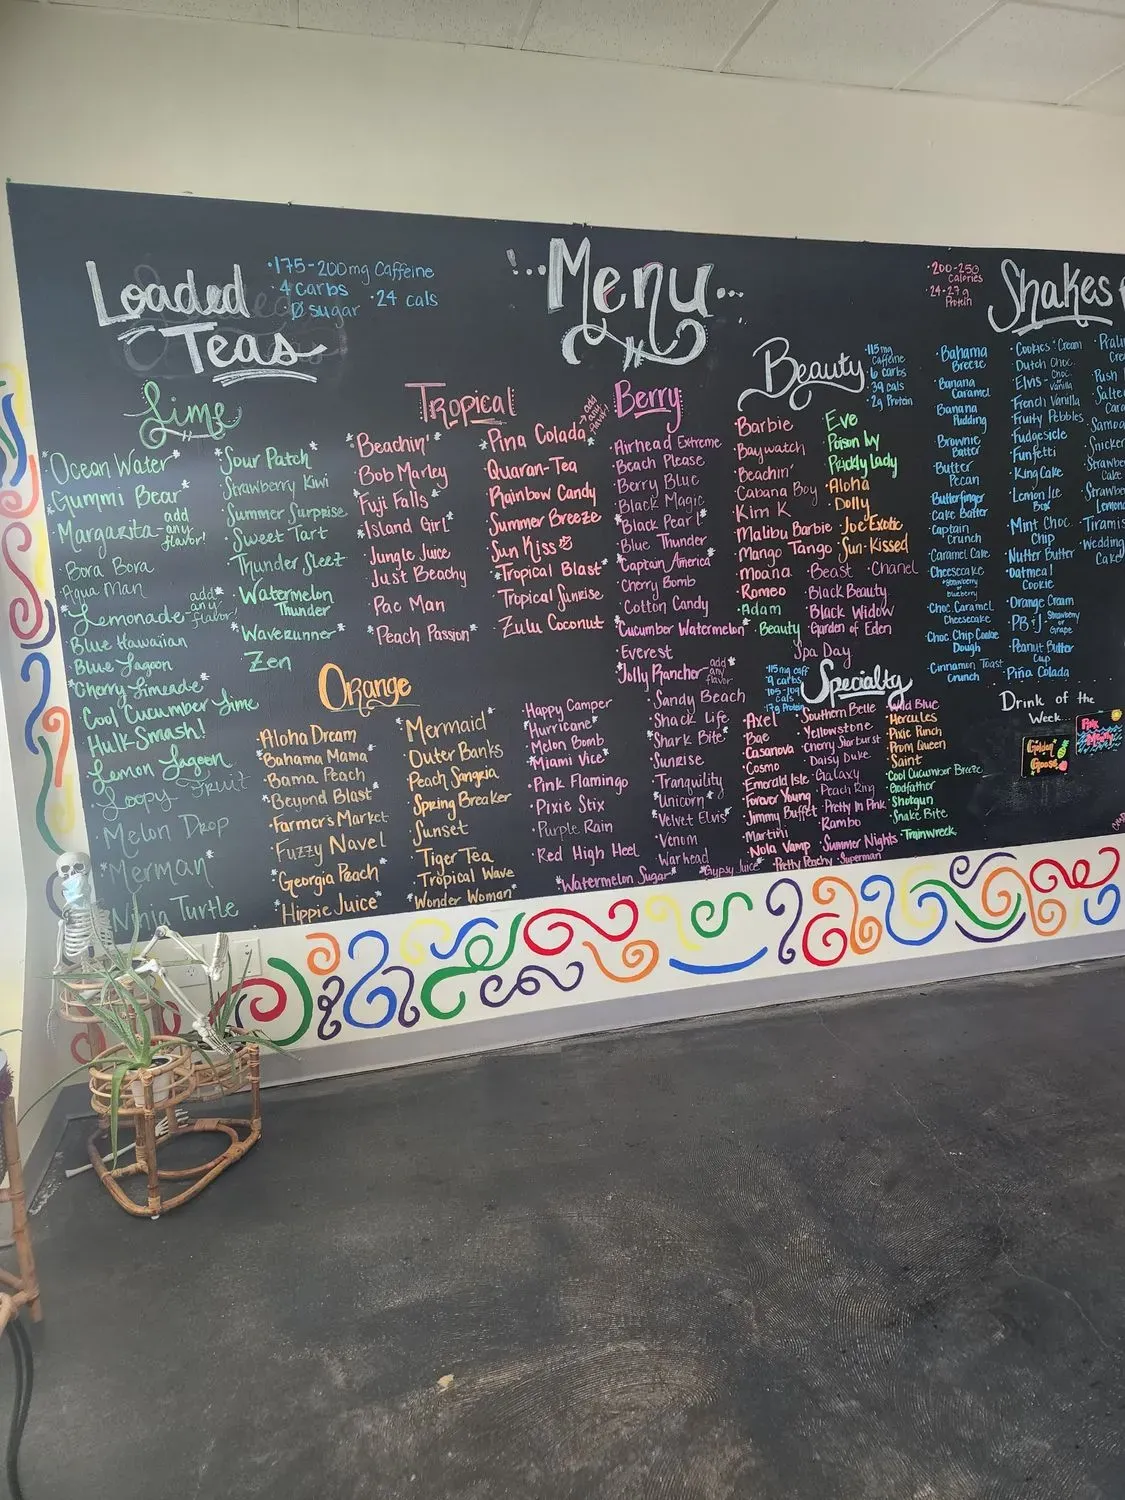 Loaded
Teas
·175-200mg Caffeine
·4 carbs
·24 cals
Ø sugar
!..Menu...
·200-250
Calories
·24-27g
Protein
Shakes
Lime
·Ocean Water*
*Gummi Bear*
·Margarita-add
any
flavor!
·Bora Bora
·Aqua Man
*Lemonade add
any
flavor!
·Blue Hawaiian
·Blue Lagoon
*Cherry Limeade*
·Cool Cucumber Lime
·Hulk-Smash!
·Lemon Lagoon
·Loopy Fruit
·Melon Drop
·Merman*
·Ninja Turtle
*Sour Patch*
·Strawberry Kiwi
·Summer Surprise
·Sweet Tart
·Thunder Sleet
·Watermelon
Thunder
·Waverunner*
·Zen
Tropical
*Beachin'*
·Bob Marley
·Fuji Falls*
*Island Girl*
·Jungle Juice
·Just Beachy
·Pac Man
*Peach Passion*
·Pina Colada*
add
any
flavor!
·Quaran-Tea
·Rainbow Candy
·Summer Breeze
·Sun Kiss
*Tropical Blast*
·Tropical Sunrise
·Zulu Coconut
Orange
·Aloha Dream
*Bahama Mama*
·Bama Peach
*Beyond Blast*
·Farmer's Market
·Fuzzy Navel
*Georgia Peach*
*Hippie Juice*
*Mermaid*
·Outer Banks
·Peach Sangria
·Spring Breaker
·Sunset
·Tiger Tea
·Tropical Wave
*Wonder Woman*
Berry
·Airhead Extreme
·Beach Please
·Berry Blue
·Black Magic
*Black Pearl*
·Blue Thunder
*Captain America*
·Cherry Bomb
·Cotton Candy
*Cucumber Watermelon*
·Everest
·Jolly Rancher add
any
flavor
·Happy Camper
*Hurricane*
·Melon Bomb
*Miami Vice*
·Pink Flamingo
·Pixie Stix
·Purple Rain
·Red High Heel
*Watermelon Sugar*
·Sandy Beach
·Shack Life
*Shark Bite*
·Sunrise
·Tranquility
*Unicorn*
*Velvet Elvis*
·Venom
·Warhead
*Gypsy Juice*
Beauty
·115mg
caffeine
·6 carbs
·39 cals
·2g Protein
·Barbie
·Baywatch
·Beachin'
·Cabana Boy
·Kim K
·Malibu Barbie
·Mango Tango
·Moana
·Romeo
·Adam
·Beauty
·Eve
·Poison Ivy
·Prickly Lady
·Aloha
·Dolly
·Joe Exotic
·Sun-Kissed
·Beast
·Chanel
·Black Beauty
·Black Widow
·Garden of Eden
·Spa Day
Specialty
·115mg caff
·9 carbs
·17g Protein
·Axel
·Bae
·Casanova
·Cosmo
·Emerald Isle
·Forever Young
·Jimmy Buffet
·Martini
·Nola Vamp
·Pretty Peachy
·Southern Belle
·Yellowstone
·Cherry Starburst
·Daisy Duke
·Galaxy
·Peach Ring
·Pretty In Pink
·Rambo
·Summer Nights
·Superman
·Wild Blue
·Hercules
·Pixie Punch
·Prom Queen
·Saint
·Cool Cucumber Breeze
·Godfather
·Shotgun
·Snake Bite
·Trainwreck
·Bahama
Breeze
·Banana
Caramel
·Banana
Pudding
·Brownie
Batter
·Butter
Pecan
·Butterfinger
·Cake Batter
·Captain
Crunch
·Caramel Cake
·Cheesecake
·Strawberry
or
blueberry
·Choc. Caramel
Cheesecake
·Choc. Chip Cookie
Dough
·Cinnamon Toast
Crunch
·Cookies + Cream
·Dutch Choc.
·Elvis- Choc.
Vanilla
·French Vanilla
·Fruity Pebbles
·Fudgesicle
·Funfetti
·King Cake
·Lemon Ice
Box
·Mint Choc.
Chip
·Nutter Butter
·Oatmeal
Cookie
·Orange Cream
·PB+J-Strawberry
or
Grape
·Peanut Butter
Cup
·Piña Colada
·Push
·Strawberry
Drink of the
Week...
Golden
Goose
Pink